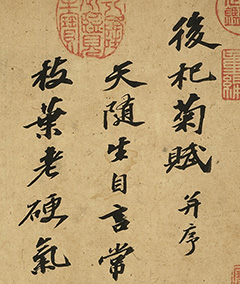 後杞菊賦并序
天隨生自言常
枝葉老硬氣